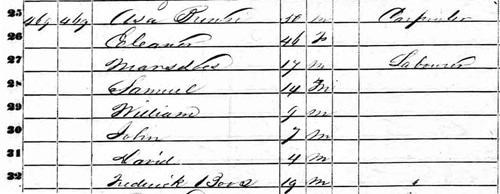 25 469 469 Asa 50 m Carpenter
26 Eleanor 46 F
27 Marsdles 17 m Labourer
28 Samuel 14 m
29 William 9 m
30 John 7 m
31 David 4 m
32 Frederick 19 m